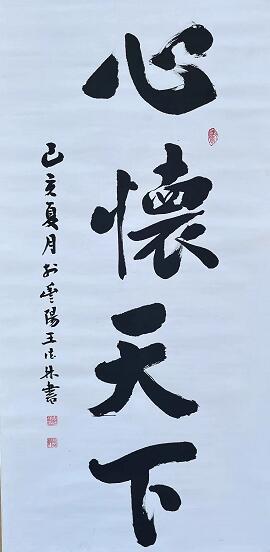 心懷天下
己亥夏月於
陽王
書